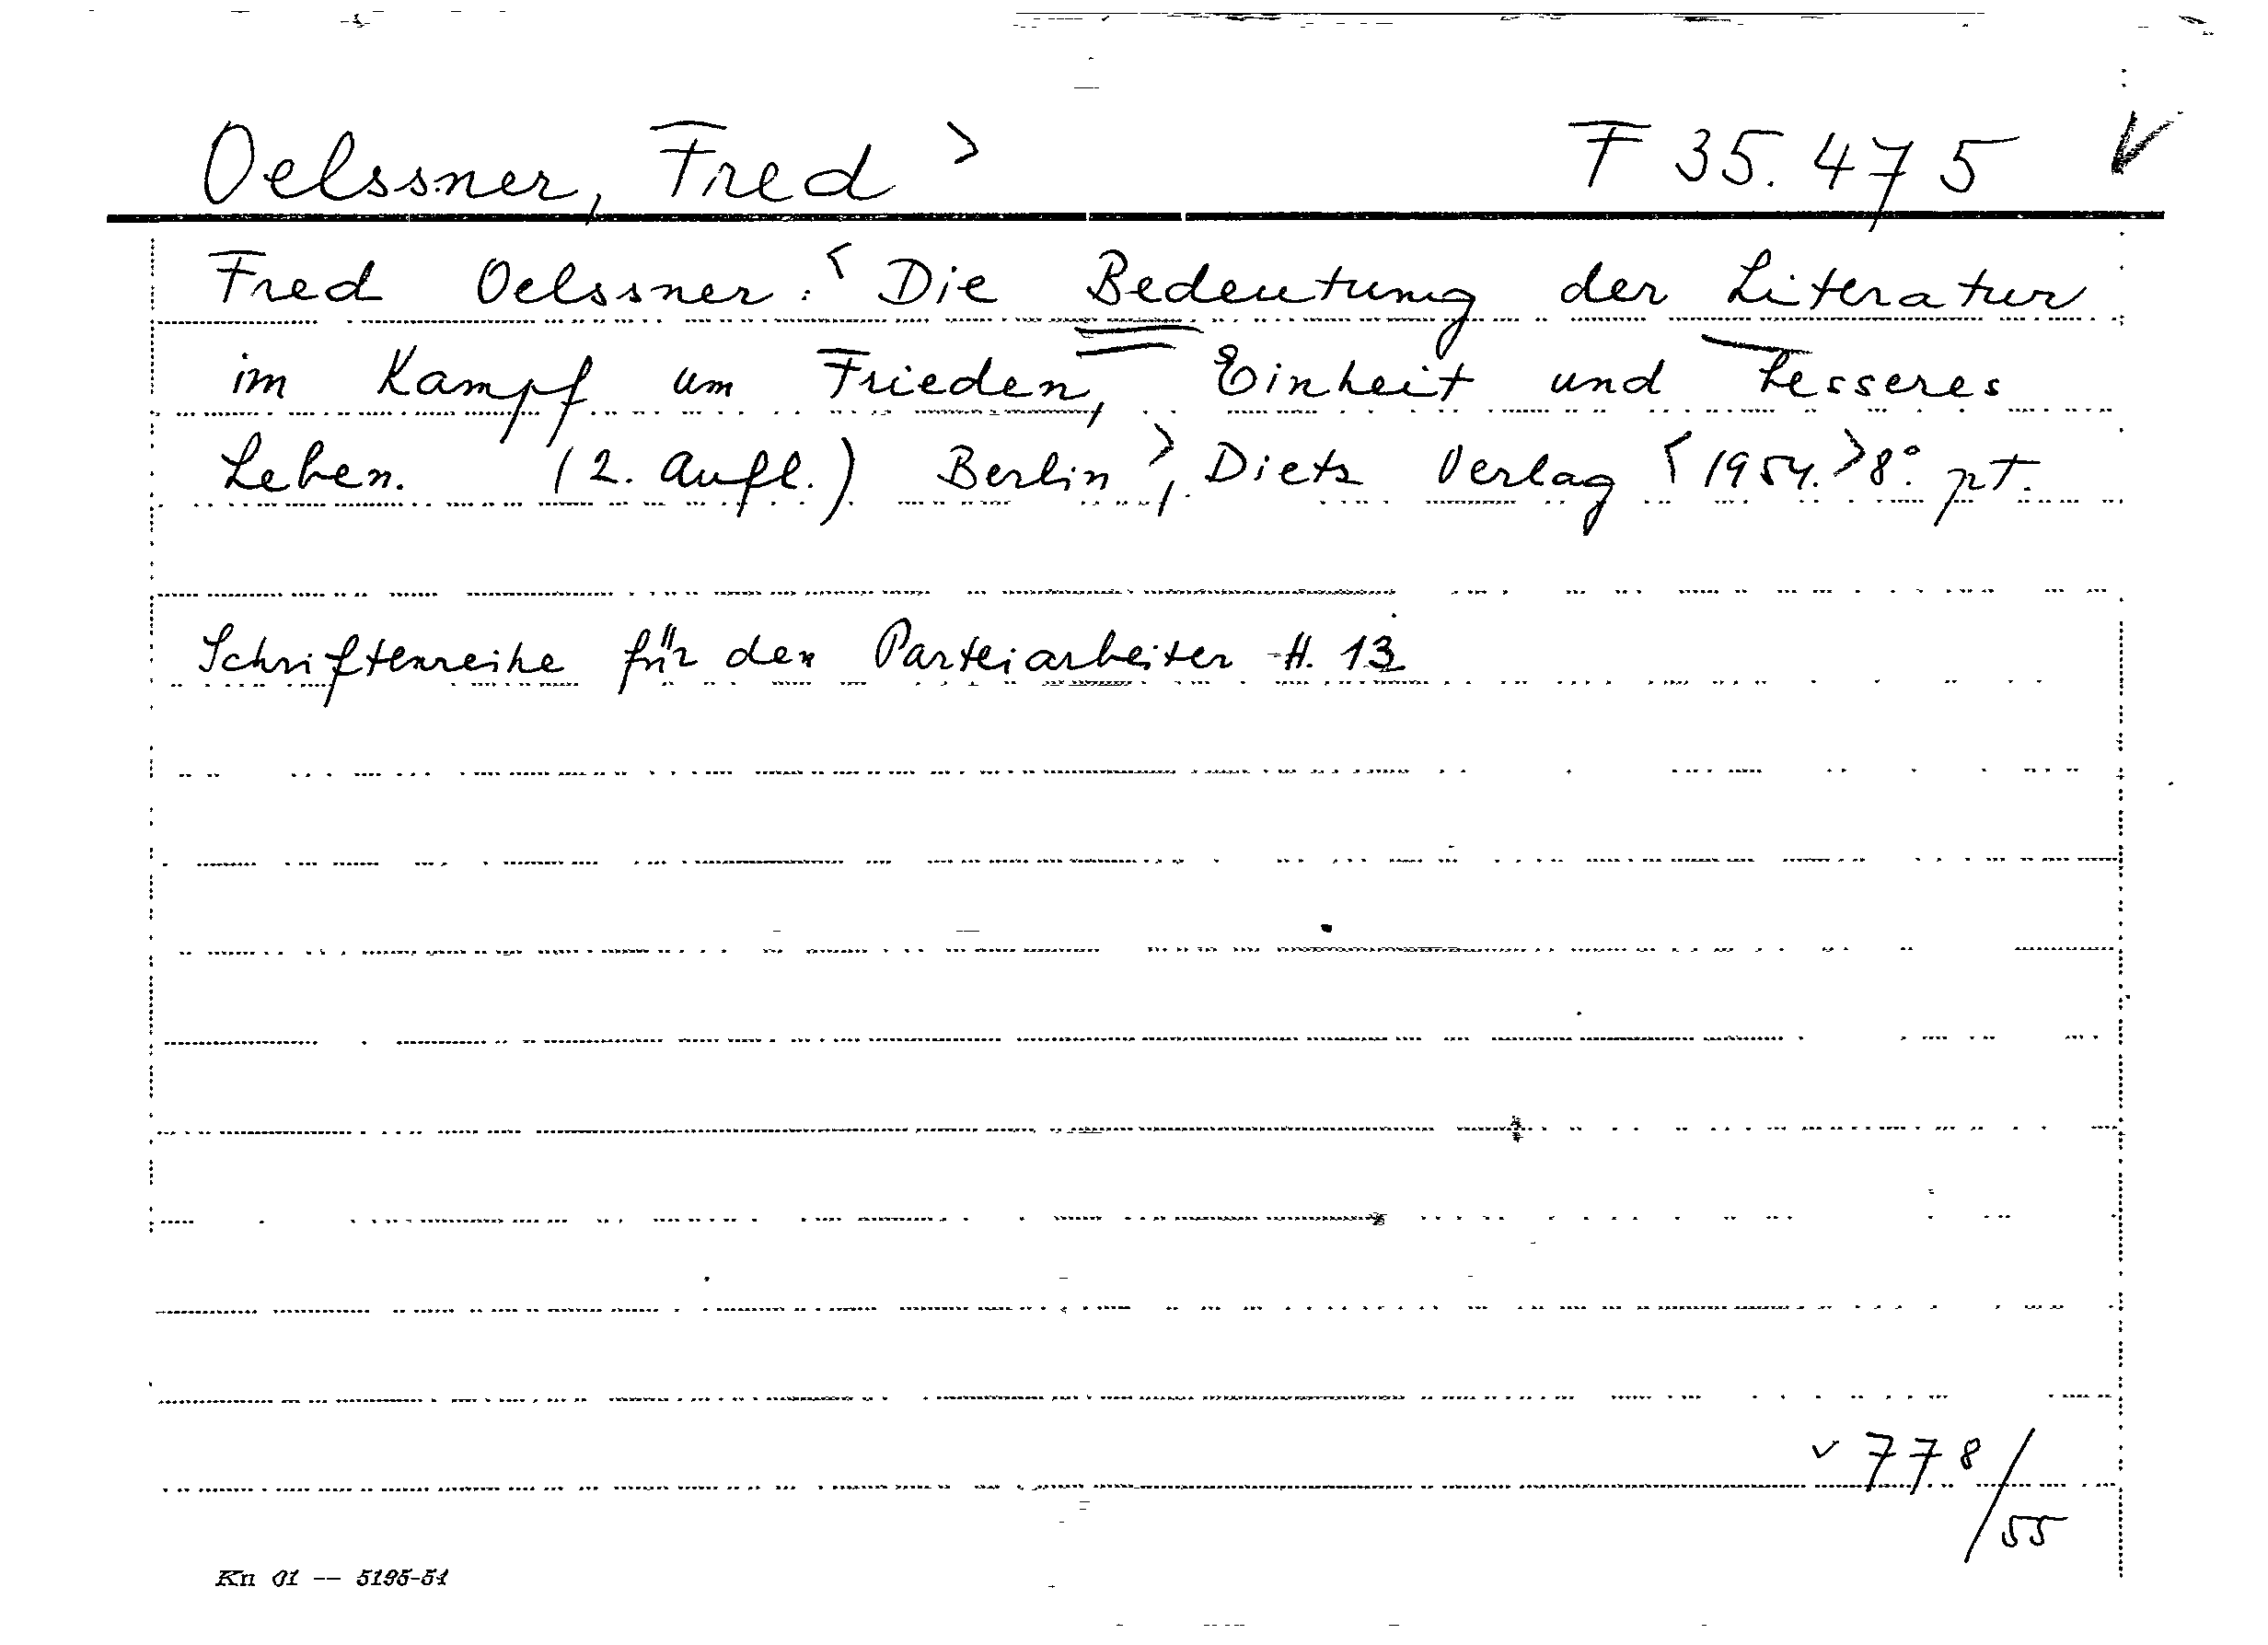 Oelssner, Fred > F 35.475 V
Fred Oelssner: < Die Bedeutung der Literatur
im Kampf um Frieden, Einheit und besseres
Leben. (2. Aufl.) Berlin >, Dietz Verlag < 1954. > 8°. pt.
Schriftenreihe für den Parteiarbeiter H. 13
v 778/55
Kn 01 -- 5195-51